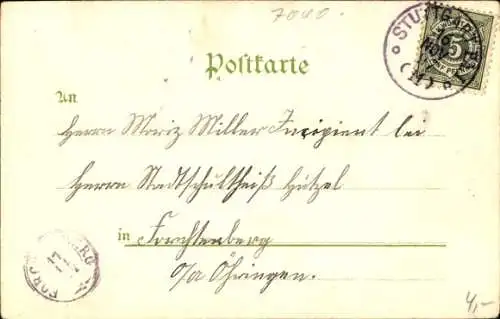 7040.
STUTTGART
5
Postkarte
An
Herrn Moriz Miller Incipient bei
Herrn Stadtschultheiß Hützel
in Forchtenberg
O/A Öhringen.
4,-